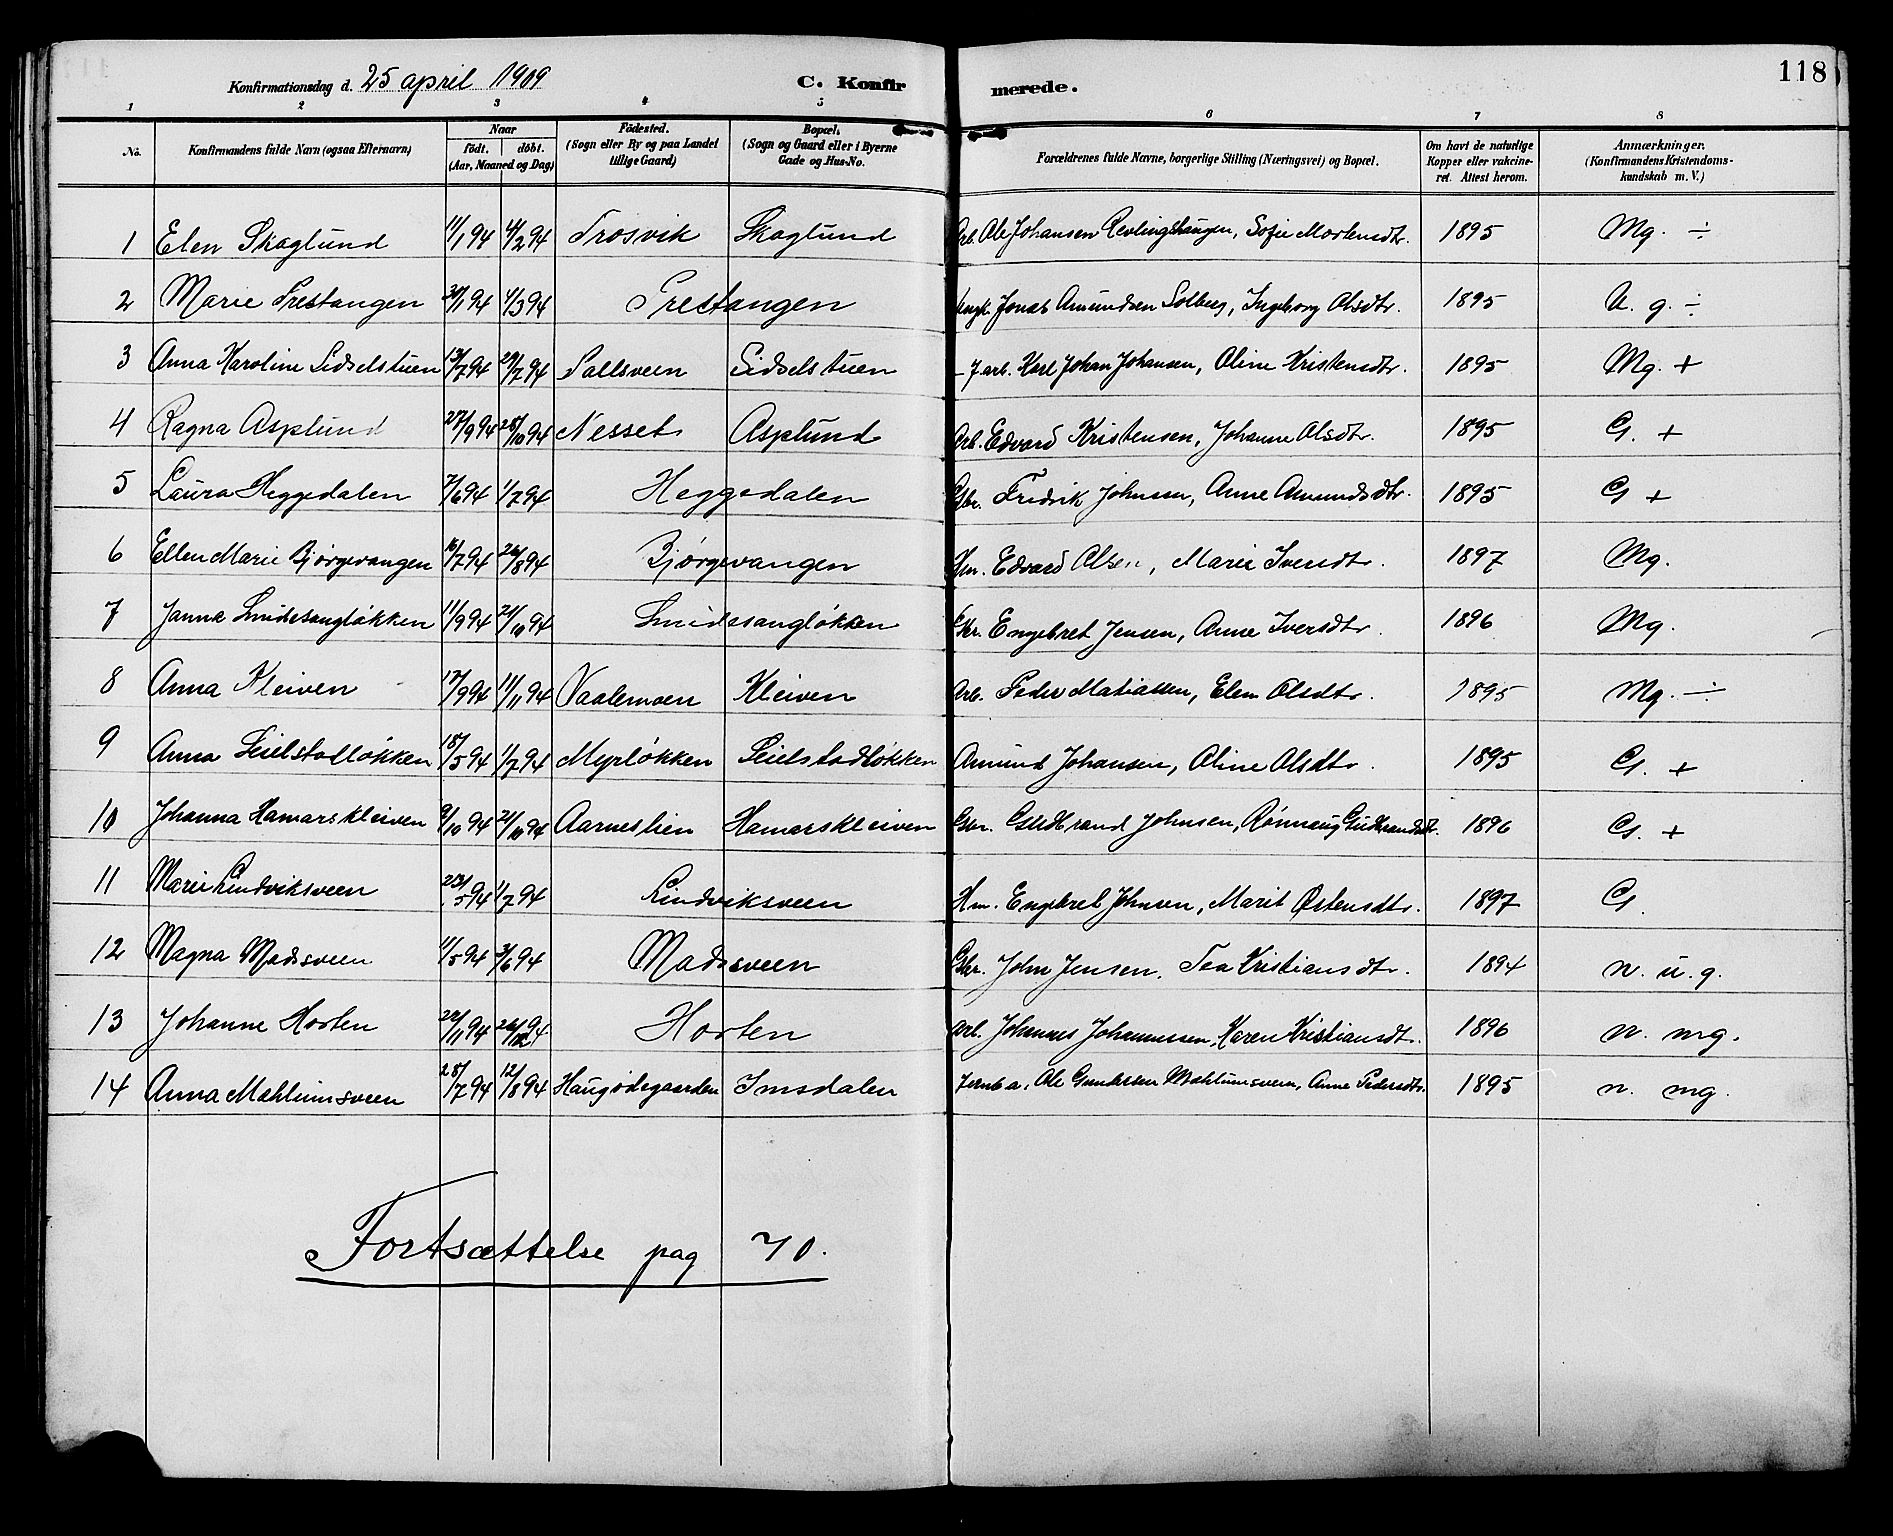 118
Konfirmationsdag d. 25 april 1909 C. Konfirmerede.
1 2 3 4 5 6 7 8
No. Konfirmandens fulde Navn (ogsaa Efternavn) Naar födt. döbt. (Aar, Maaned og Dag) Födested. (Sogn eller By og paa Landet tillige Gaard) Bopæl. (Sogn og Gaard eller i Byerne Gade og Hus-No. Forældrenes fulde Navne, borgerlige Stilling (Næringsvei) og Bopæl. Om havt de naturlige Kopper eller vakcineret. Attest herom. Anmærkninger. (Konfirmandens Kristendomskundskab m. V.)
1 Elen Skoglund 11/1 94 4/2 94 Trosvik Skoglund Arb. Ole Johansen Revlingshaugen, Sofie Mortensdtr. 1895 Mg. ÷
2 Marie Prestangen 30/1 94 4/3 94 Prestangen Jonas Amundsen Solberg, Ingeborg Olsdtr. 1895 U. g. ÷
3 Anna Karoline Sidselstuen 13/7 94 29/7 94 Sidselstuen - J.arb. Karl Johan Johansen, Oline Kristensdtr. 1895 Mg. +
4 Ragna Asplund 27/9 94 28/10 94 Nesset Asplund Arb. Edvard Kristensen, Johanne Olsdtr. 1895 G. +
5 Laura Heggedalen 7/6 94 1/7 94 Heggedalen Gbr. Fredrik Johnsen, Anne Amundsdtr. 1895 G +
6 Ellen Marie Bjørgevangen 16/7 94 26/8 94 Bjørgevangen Hm. Edvard Olsen, Marie Iversdtr. 1897 Mg.
7 Janna Smidesangløkken 11/9 94 21/10 94 Smidesangløkken Gbr. Engebret Jensen, Anne Iversdtr. 1896 Mg.
8 Anna Kleiven 17/9 94 11/11 94 Vaalemoen Kleiven Arb. Peder Matiassen, Elen Olsdtr. 1895 Mg. ÷
9 Anna Seielstadløkken 18/5 94 1/7 94 Myrløkken Seielstadløkken Amund Johansen, Oline Olsdtr. 1895 G. +
10 Johanna Hamarskleiven 9/10 94 21/10 94 Aarneslien Hamarskleiven Gbr. Gudbrand Johnsen, Rønnaug Gudbrandsdtr. 1896 G. +
11 Marie Lindviksveen 23/5 94 1/7 94 Lindviksveen Hm. Engebret Johnsen, Marit Østensdtr. 1897 G.
12 Magna Madssveen 11/5 94 3/6 94 Madssveen Gbr. John Jensen, Tea Kristiansdtr. 1894 n. u. g.
13 Johanne Horten 22/11 94 26/12 94 Horten Arb. Johannes Johannessen, Karen Kristiansdtr. 1896 n. mg.
14 Anna Mæhlumsveen 28/7 94 12/8 94 Haugødegaarden Imsdalen Jernb a. Ole Gundersen Mæhlumsveen, Anne Pedersdtr. 1895 n. mg.
Fortsættelse pag 70.